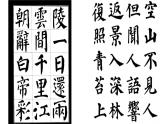 朝辭白帝彩
雲間千里江
陵一日還兩
空山不見人
但聞人語響
返景入深林
復照青苔上